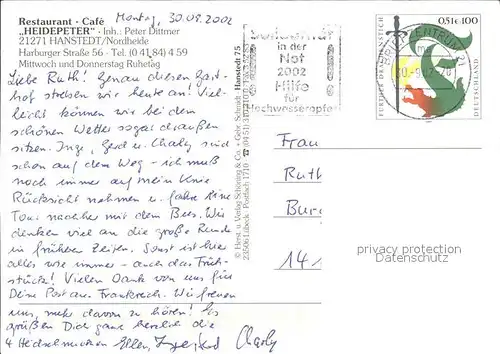 Restaurant · Café
"HEIDEPETER" · Inh.: Peter Dittmer
21271 HANSTEDT/Nordheide
Harburger Straße 56 · Tel. (0 41 84) 4 59
Mittwoch und Donnerstag Ruhetag
Montag, 30.09.2002
Liebe Ruth! Genau diesen Gast-
hof streben wir heute an! Viel-
leicht können wir bei dem
schönen Wetter sogar draußen
sitzen. Inge, Gerd u. Charly sind
schon auf dem Weg - ich muß
noch immer auf mein Knie
Rücksicht nehmen u. fahre eine
Tour nachher mit dem Bus. Wir
denken viel an die große Runde
in früheren Zeiten. Sonst ist hier
alles wie immer - auch das Früh-
stück! Vielen Dank von uns für
Deine Post aus Frankreich. Wir freuen
uns, mehr davon zu hören! Es
grüßen Dich ganz herzlich die
4 Heidschnucken Ellen, Inge, Gerd Charly
Hanstedt 75
Solidarität
in der
Not
2002
Hilfe
für
Hochwasseropfer
0,51€ 100
FÜRTHER DRACHENSTICH
DEUTSCHLAND
BRIEFZENTRUM 21
30.-9.02-20
Frau
Ruth
14.1
privacy protection
Datenschutz